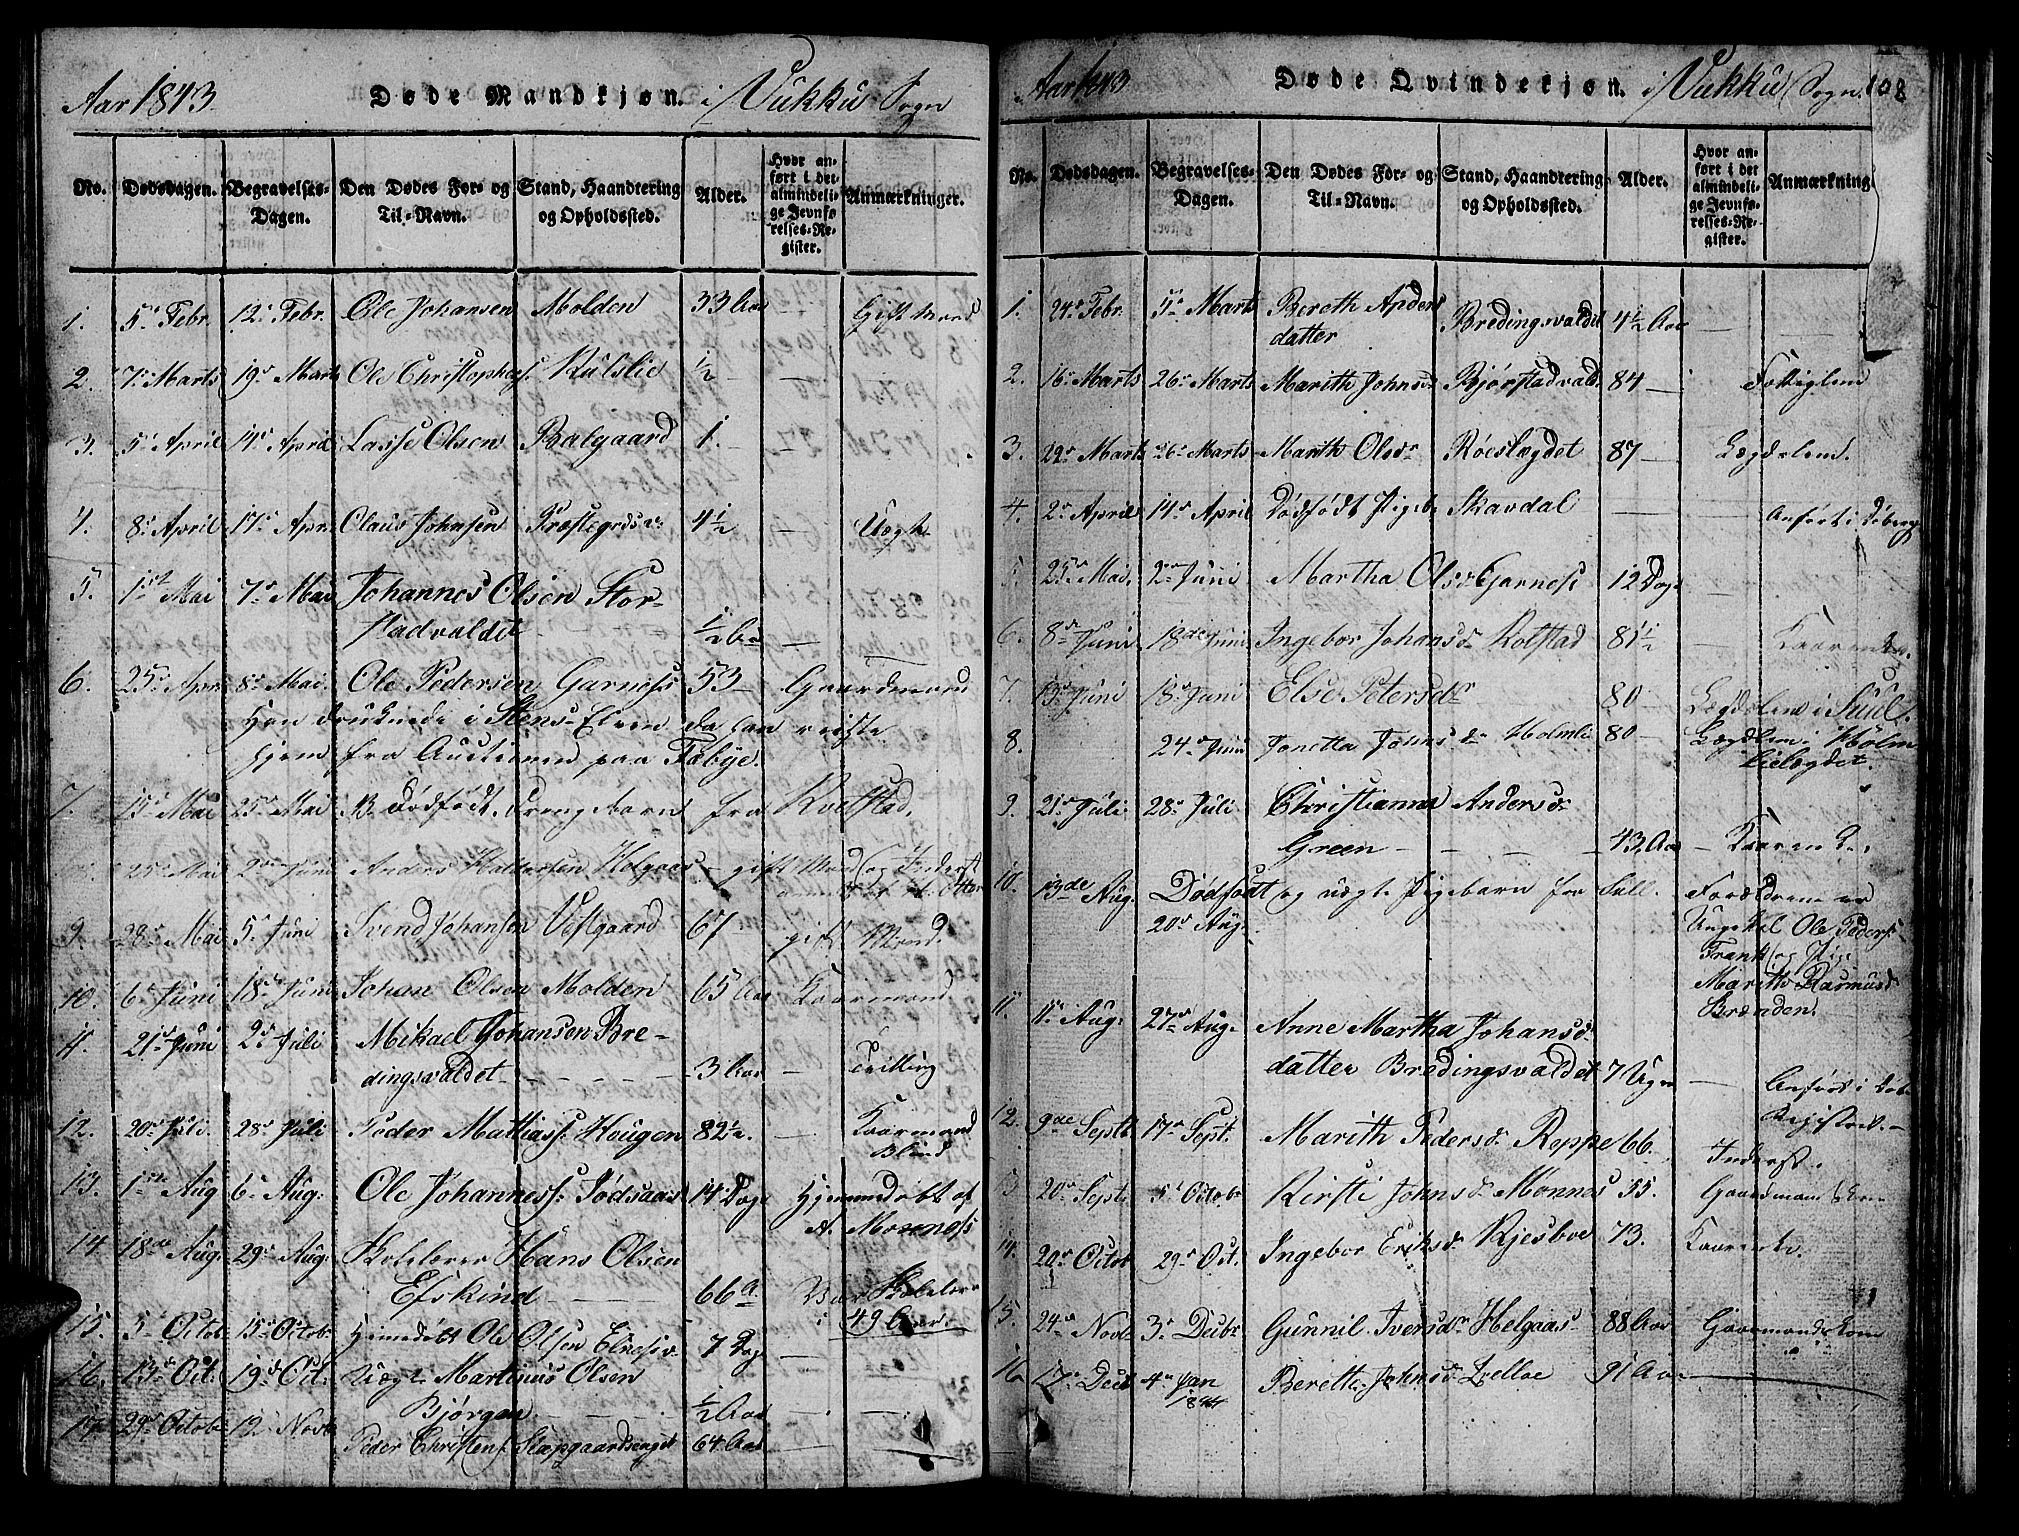 Aar 1843. Døde Mandkjøn. i Vukku Sogn
No. Dødsdagen. Begravelses-Dagen. Den Dødes For- og Til-Navn. Stand, Haandtering og Opholdssted. Alder. Hvor anført i det almindelige Jevnførelses-Register. Anmærkninger.
1. 5te Febr. 12te Febr. Ole Johansen Molden 33 Aar — Gift Mand
2. 7de Marts 19de Marts Ole Christophers. Kulslie ½ —
3. 5te April 14de April Lasse Olsen Balgaard 1. —
4. 8de April 17de Apr. Claus Johnsen Præstegrdsv. 4½ — Uægte
5. 1ste Mai 7de Mai Johannes Olsen Stor-
stadvaldet — ½ Aar —
6. 25de Apr. 8de Mai. Ole Pedersen Garness 53 — Gaardmand
Han druknede i Stens-Elven da han reiste
hjem fra Auctionen paa Fæbye.
7. 15de Mai 25de Mai Dødfødt Drengebarn fra Rolstad.
25de Mai 2den Juni Anders Haldorsen Helgaas — gift Mand og Inderst
9. 28de Mai 5te Juni Svend Johansen Vestgaard 67 — gift Mand.
10. 6te Juni 18de Juni Johan Olsen Molden 65 Aar Kaarmand
11. 21de Juni 2den Juli Mikael Johansen Bre-
dingsvaldet — 3 Aar — Trilling
12. 20de Juli. 28de Juli Peder Mathiass. Hougen 82½. — Kaarmand
Blind
13. 1ste Aug 6te Aug: Ole Johanness: Tødsaas 14 Dage Hjemmedøbt af
A. Morness
14. 18de Aug. 29de Aug: Skolelærer Hans Olsen
Efskind — 66 A. Var Skolelærer
i 49 Aar.
15. 5te Octob. 15de Octobr Hjemdøbt Ole Olsen Elnesv. 7 Dage —
16. 13de Oct. 19de Oct. Uægte Martinus Olsen
Bjørgen — ½ Aar —
17. 29de Octobr 12 Novb Peder Christens. Slapgaardsenget 64 Aar —
Aar 1843 Døde Qvindekjøn. i Vukku Sogn. 108
No. Dødsdagen. Begravelses-Dagen. Den Dødes For- og Til-Navn. Stand, Haandtering og Opholdssted. Alder. Hvor anført i det almindelige Jevnførelses-Register. Anmærkning
1. 24de Febr. 5te Marts Bereth Anders
datter Bredingsvaldet 4½ Aar —
2. 16de Marts 26de Marts Marith Johnsdr Bjørstadvald. 84 — Fattiglem
3. 22de Marts 26de Marts Marith Olsdr Røeslægdet 87 — Lægdelem.
4. 2den April 14de April Dødfødt Pigeb. Skavdal — Anført i Døbereg
5. 25de Mai. 2den Juni Martha Olsdr Garness 12 Dage —
6. 8de Juni 18de Juni Ingebor Johansdr Rolstad 81½ — Kaarenke.
7. 13de Juni 18de Juni Else Petersdr 80 — Lægdelem i Suul.
8. 24de Juni Jonetta Johnsdr Holmli 80 — Lægdlem i Holm
lielægdet.
9. 21de Juli 28de Juli Christianna Andersdr
Green — 43 Aar — Kaarenke.
10. 13de Aug. Dødfødt og uægte Pigebarn fra Sell. Forældrene er
20de Aug. Ungekal Ole Peders.
Frank og Pige
Marith Rasmusd
Brænden.
11. 11te Aug: 27de Aug. Anne Martha Johans
datter Bredingsvaldet 7 Uger — Anført i Døb
Registret.
12. 9de Septb. 17de Sept. Marith Pedersdr Reppe 66. Inderst.
13. 20de Septb 5te Octobr Kirsti Johnsdr Mønnes 55. Gaardmans Kone
14. 20de Octob 29de Oct. Ingebor Eriksdr Kjesboe 73. Kaarenke.
15. 24de Novb 3de Decbr Gunnil Iversdr Helgaas 88 Aar Gaarmands Kone
16 17de Decb 4de Jan Berette Johnsdr Zelloe 91 Aar —
1844